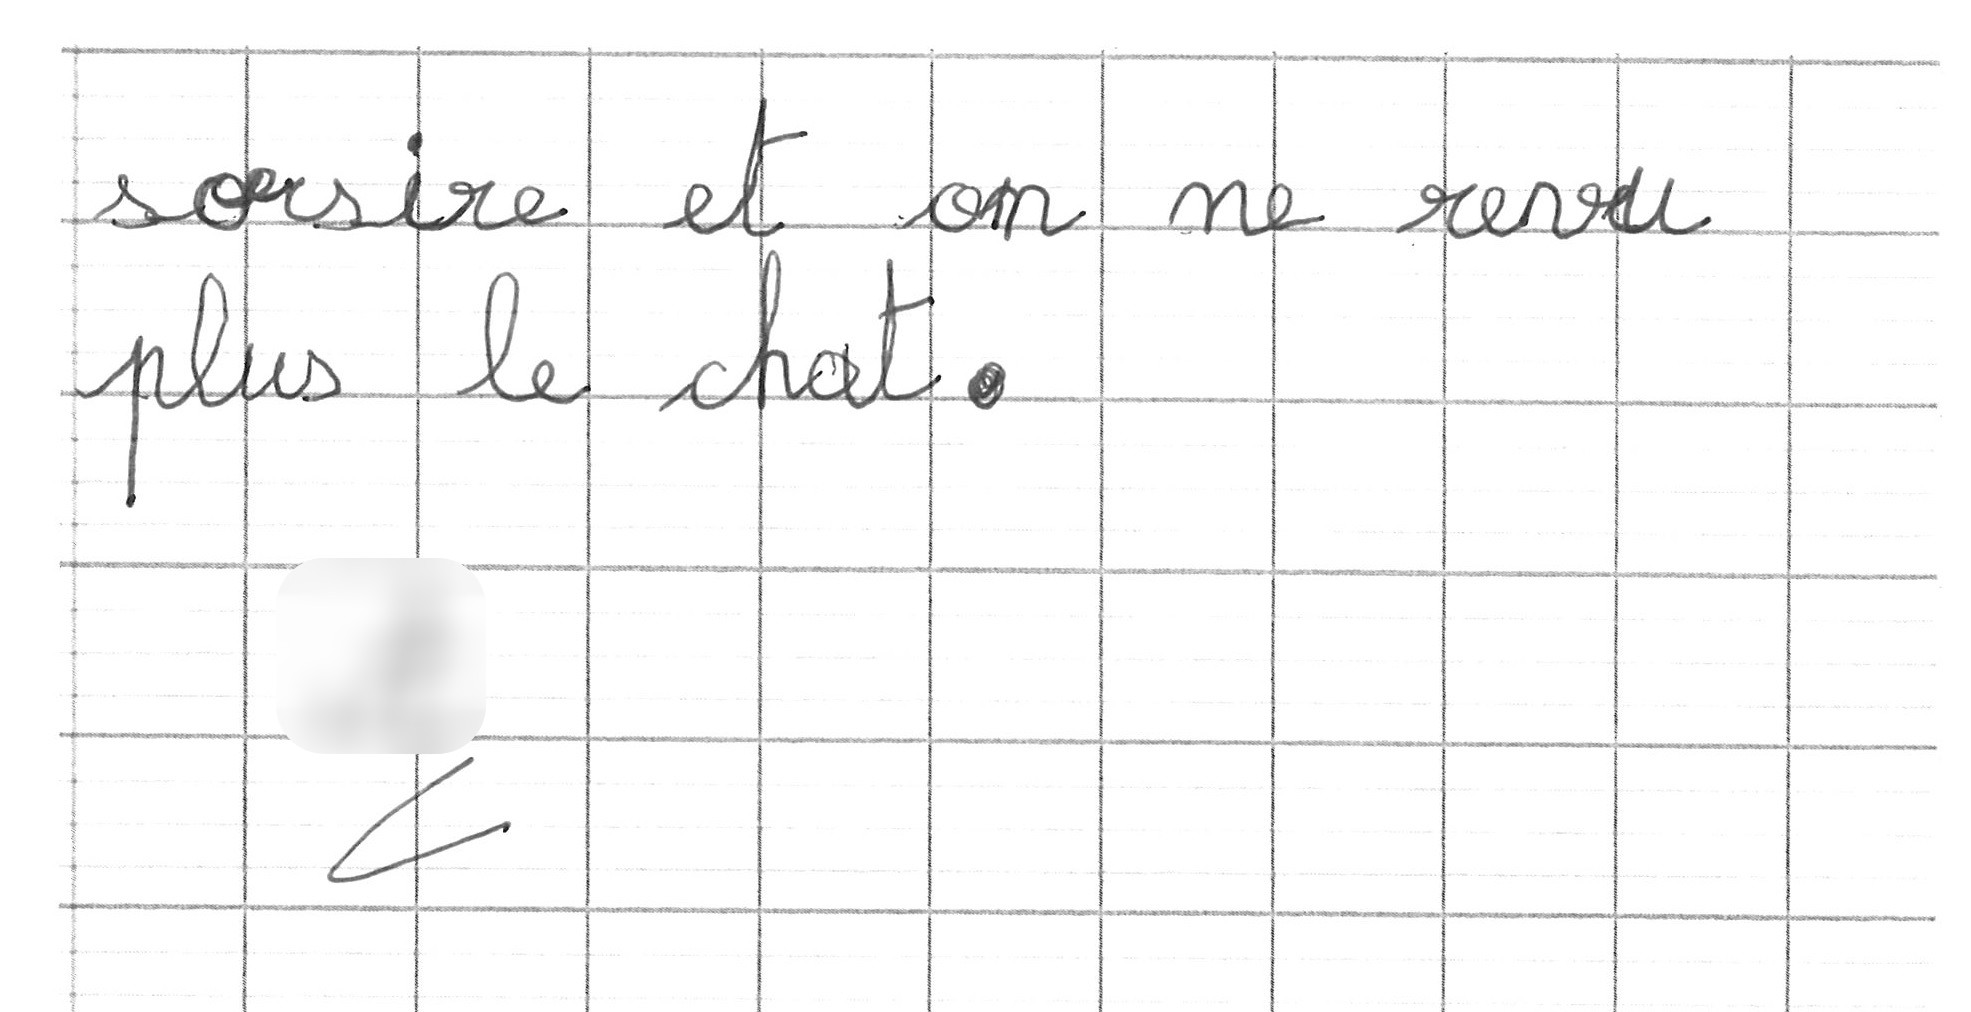 sorsire et on ne revu
plus le chat.